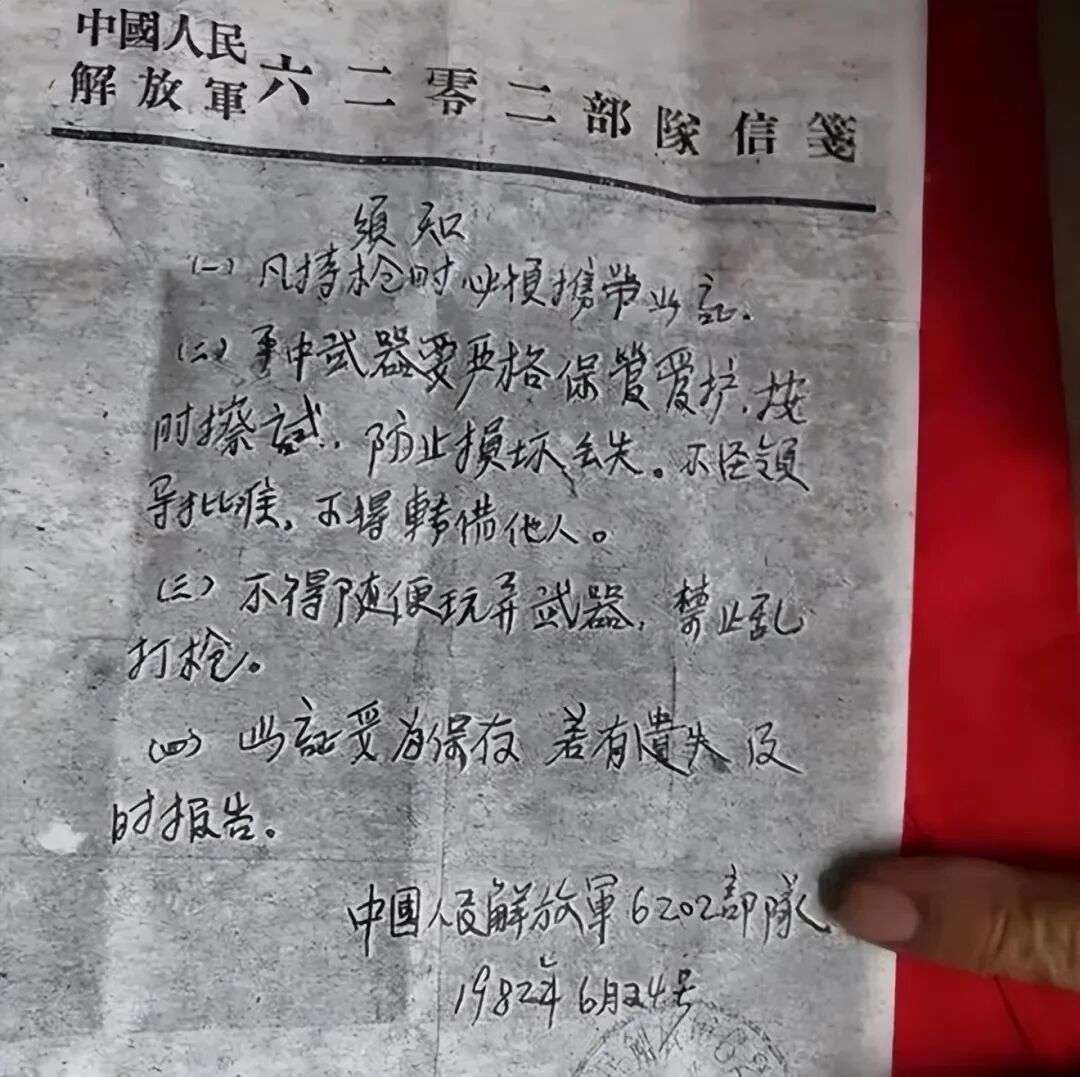 中國人民
解放軍六二零二部隊信箋
須知
(一)凡持枪时必須攜带此証。
(二)手中武器要严格保管爱护,按
时擦試,防止損坏丢失。不经領
导批准,不得轉借他人。
(三)不得随便玩弄武器,禁止乱
打枪。
(四)此証妥为保存 若有遺失及
时报告。
中國人民解放軍6202部隊
1982年6月24号